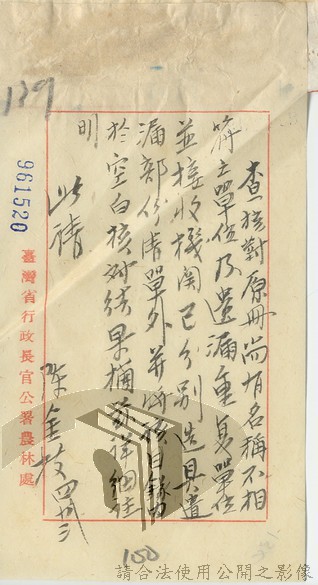 139
查核對原冊尚有名稱不相
符之單位及遺漏重複單位
並接收機關已分別造具遺
漏部份清單外并將該目錄
於空白核對結果摘敘詳細註
明
此請
961520
臺灣省行政長官公署農林處
100
請合法使用公開之影像